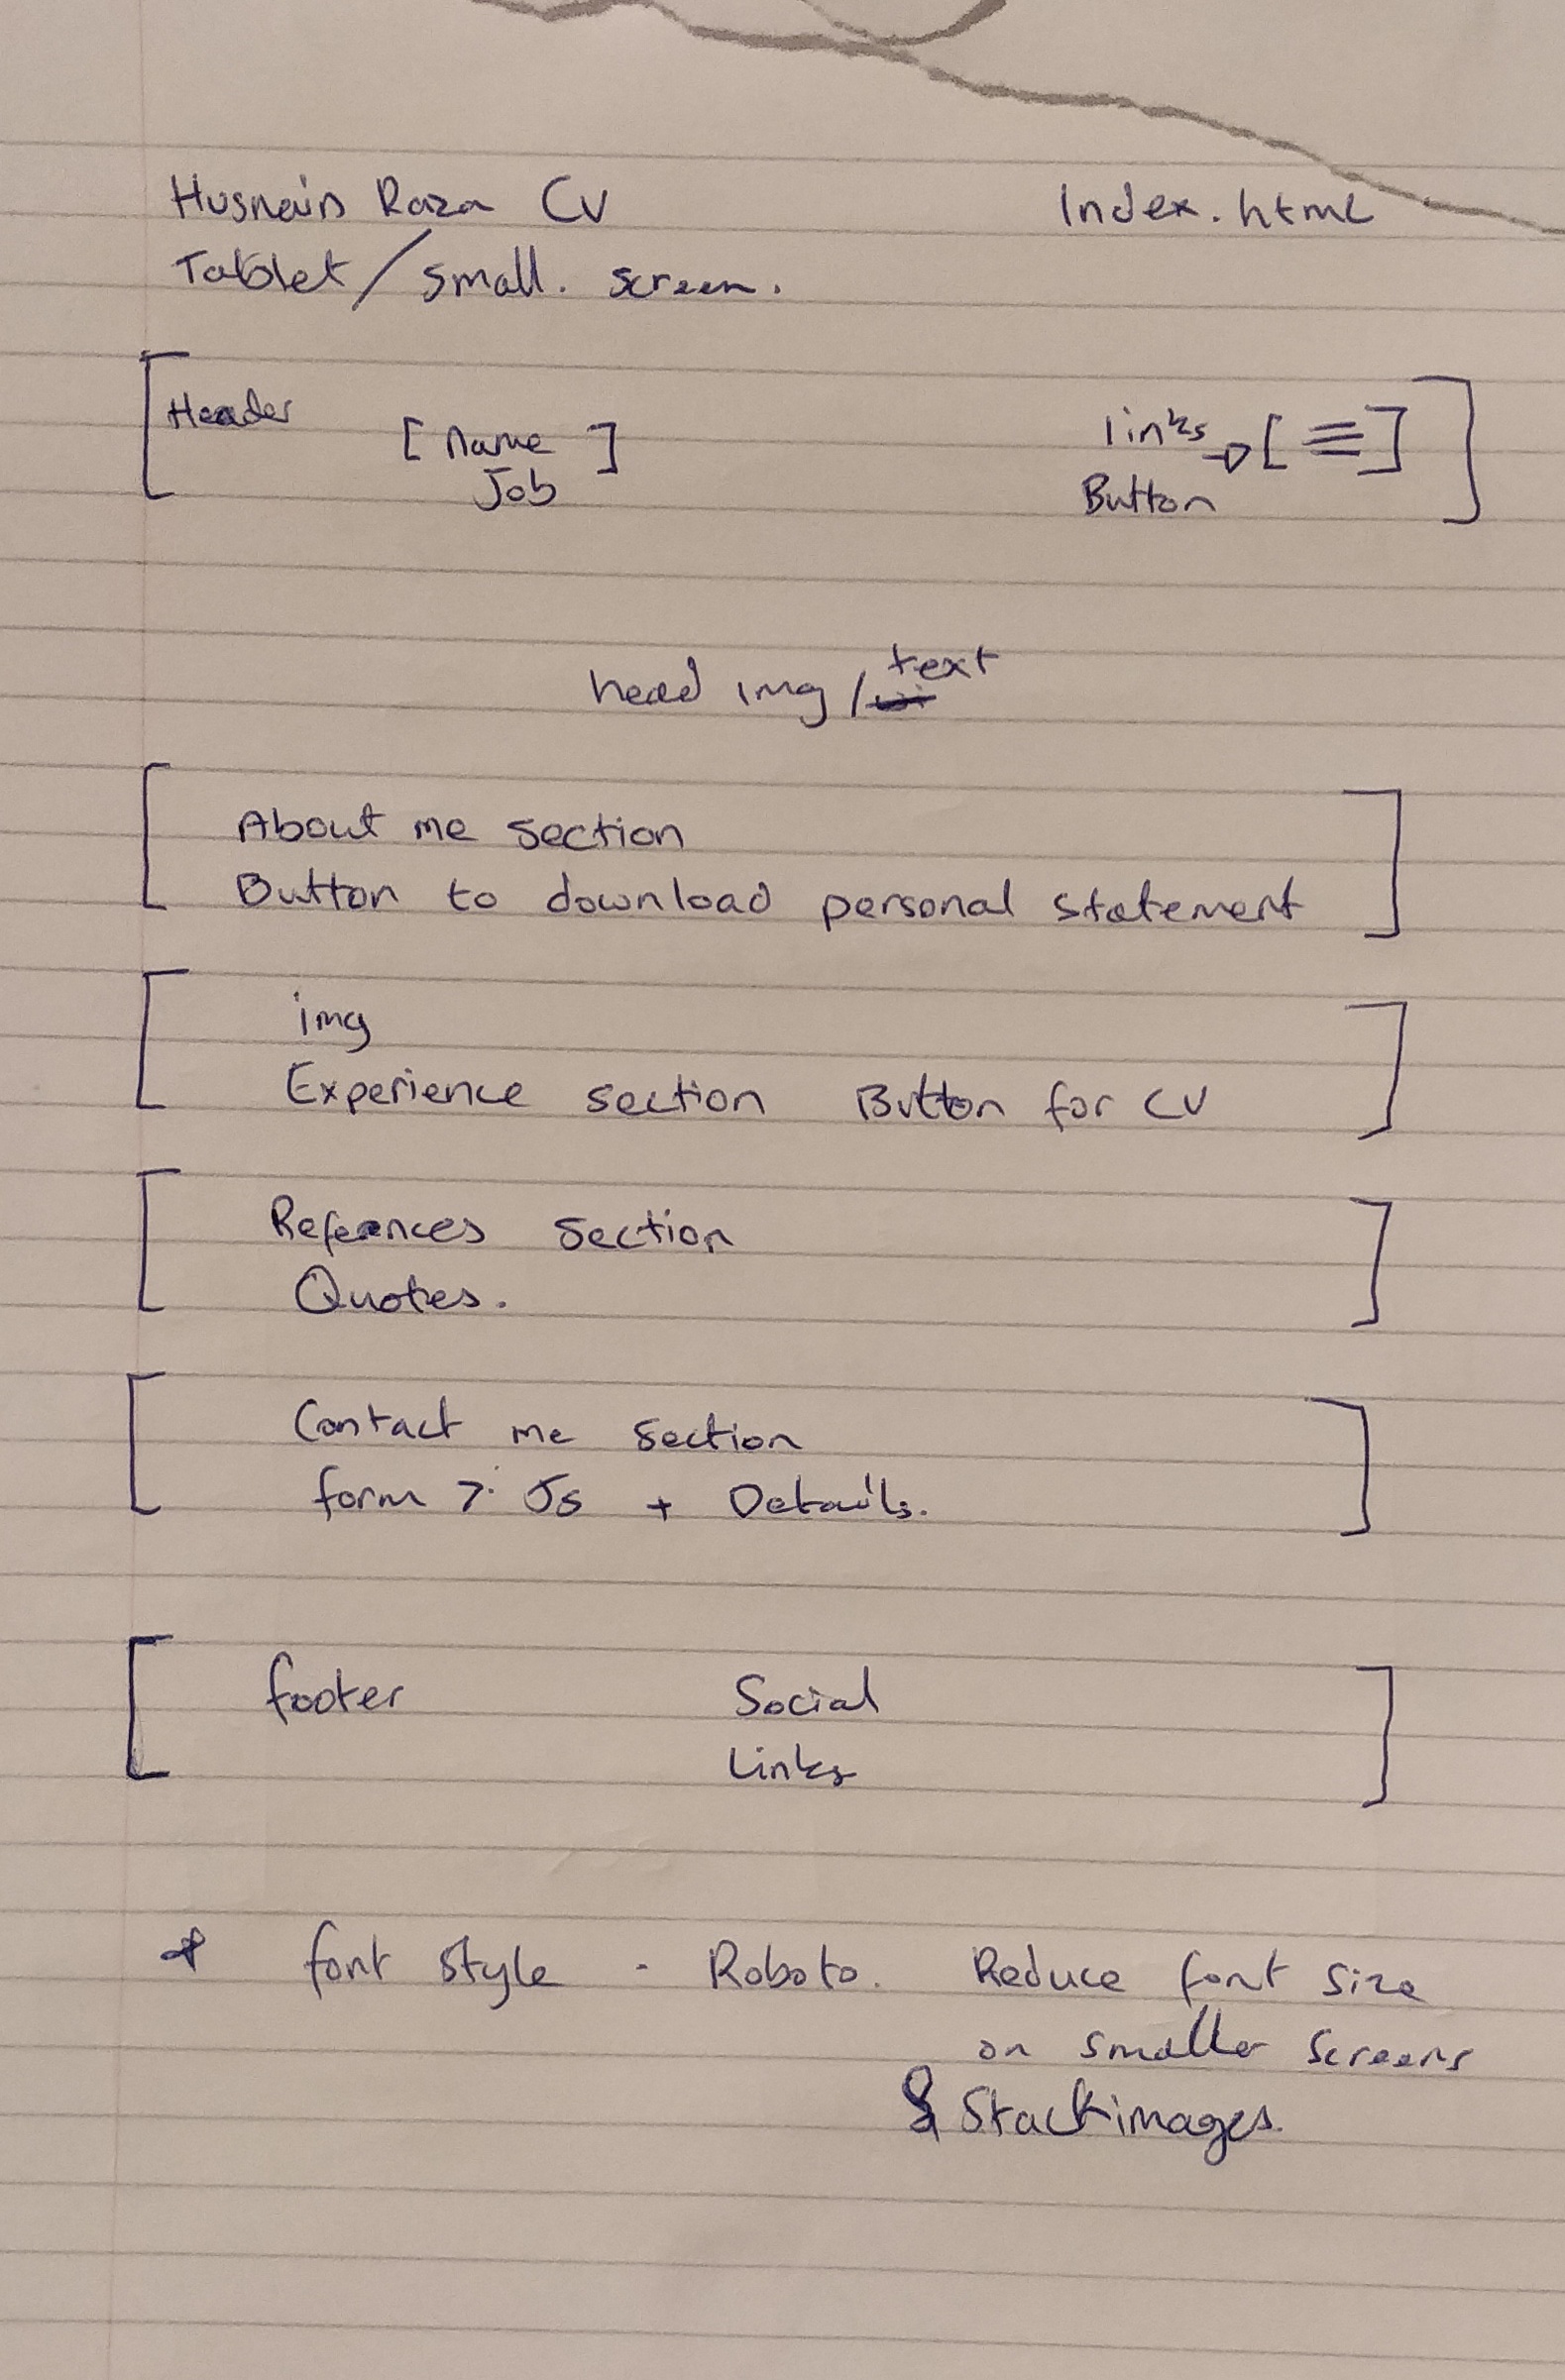 Husnain Raza CV Index.html
Tablet/small. screen.
Header [ Name ] links [ ≡ ]
Job Button
head img / text
About me section
Button to download personal statement
img
Experience section Button for CV
Refernces section
Quotes.
Contact me section
form > JS + Details.
footer Social
Links
* font style - Roboto. Reduce font size
on smaller screens
& Stack images.